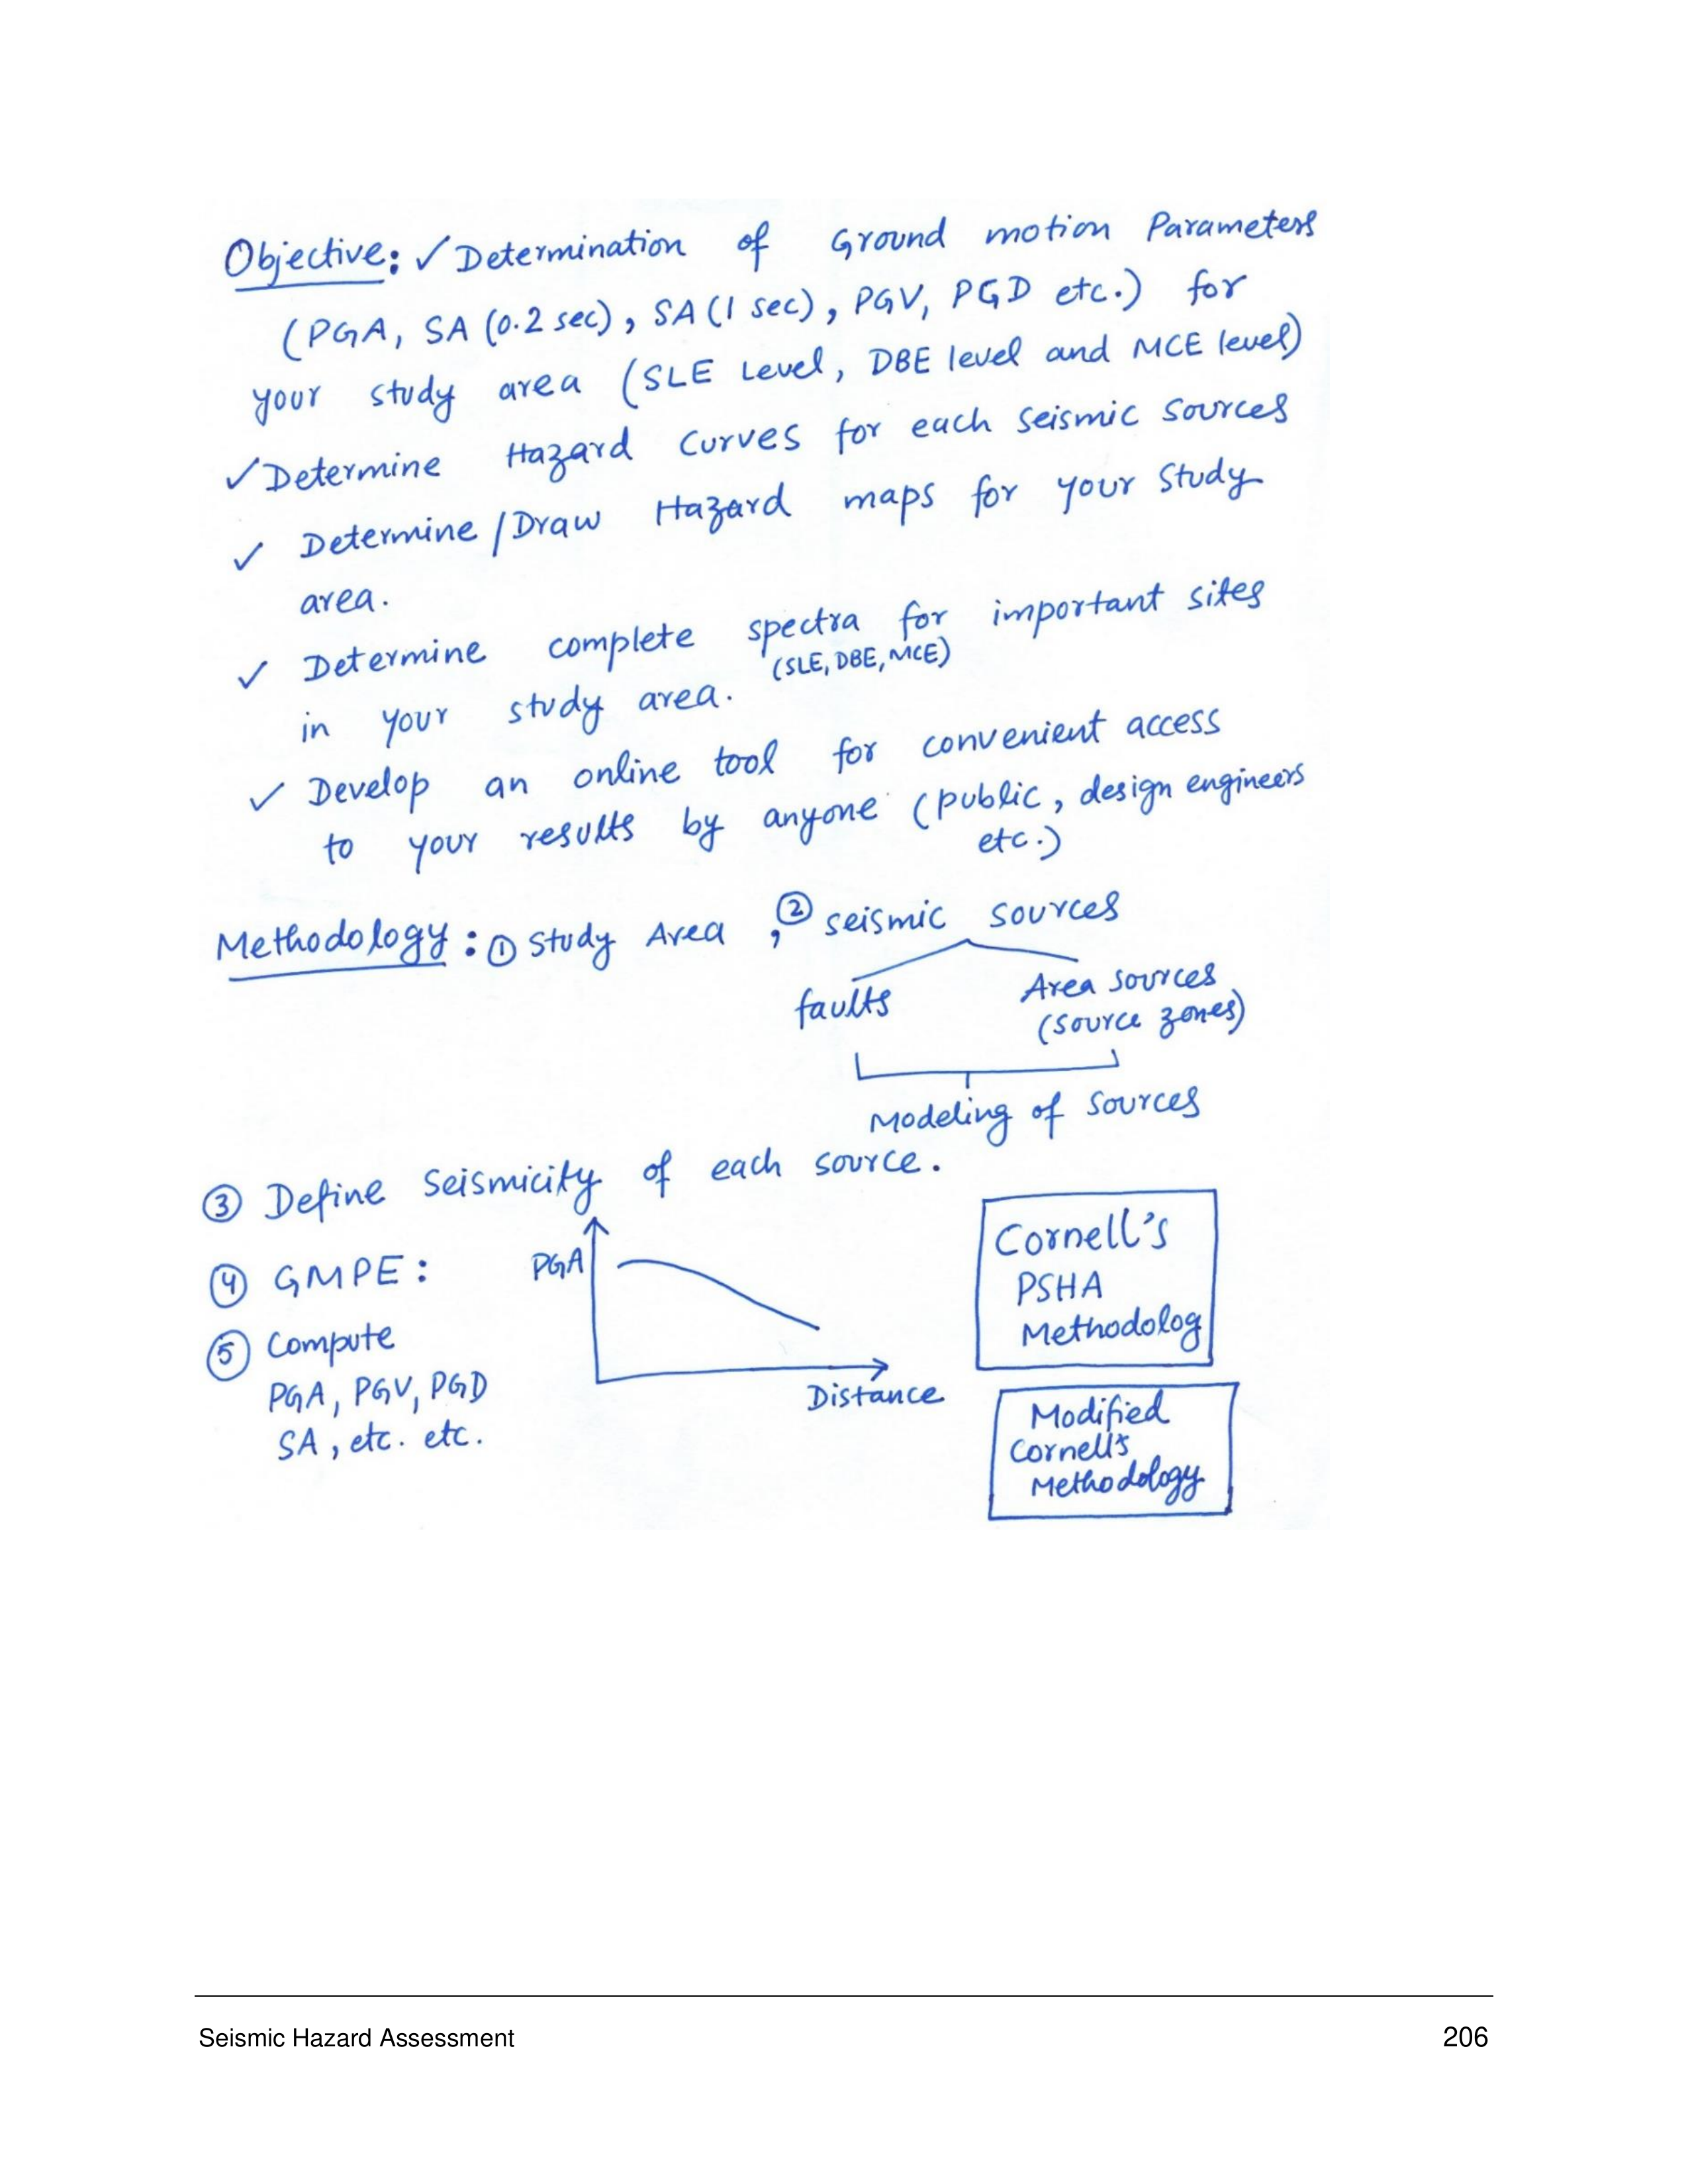 Objective: ✓ Determination of Ground motion Parameters
(PGA, SA (0.2 sec), SA (1 sec), PGV, PGD etc.) for
your study area (SLE Level, DBE level and MCE level)
✓ Determine Hazard Curves for each seismic sources
✓ Determine / Draw Hazard maps for your study
area.
✓ Determine complete spectra for important sites
(SLE, DBE, MCE)
in your study area.
✓ Develop an online tool for convenient access
to your results by anyone (public, design engineers
etc.)
Methodology: ① Study Area, ② seismic sources
faults
Area sources
(source zones)
Modeling of sources
③ Define Seismicity of each source.
④ GMPE:
PGA
Distance
⑤ Compute
PGA, PGV, PGD
SA, etc. etc.
Cornell's
PSHA
Methodolog
Modified
Cornell's
Methodology
Seismic Hazard Assessment 206